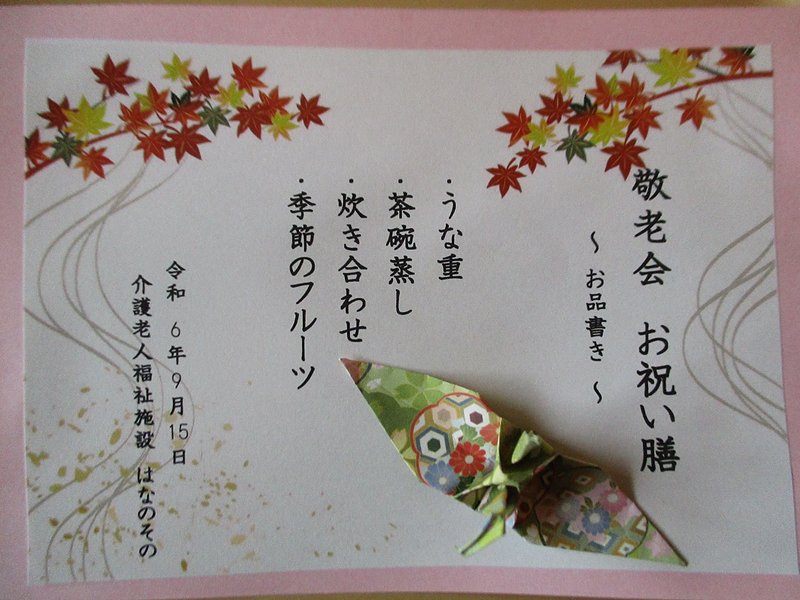 敬老会 お祝い膳
～ お品書き ～
・うな重
・茶碗蒸し
・炊き合わせ
・季節のフルーツ
令和 6年9月15日
介護老人福祉施設 はなのその